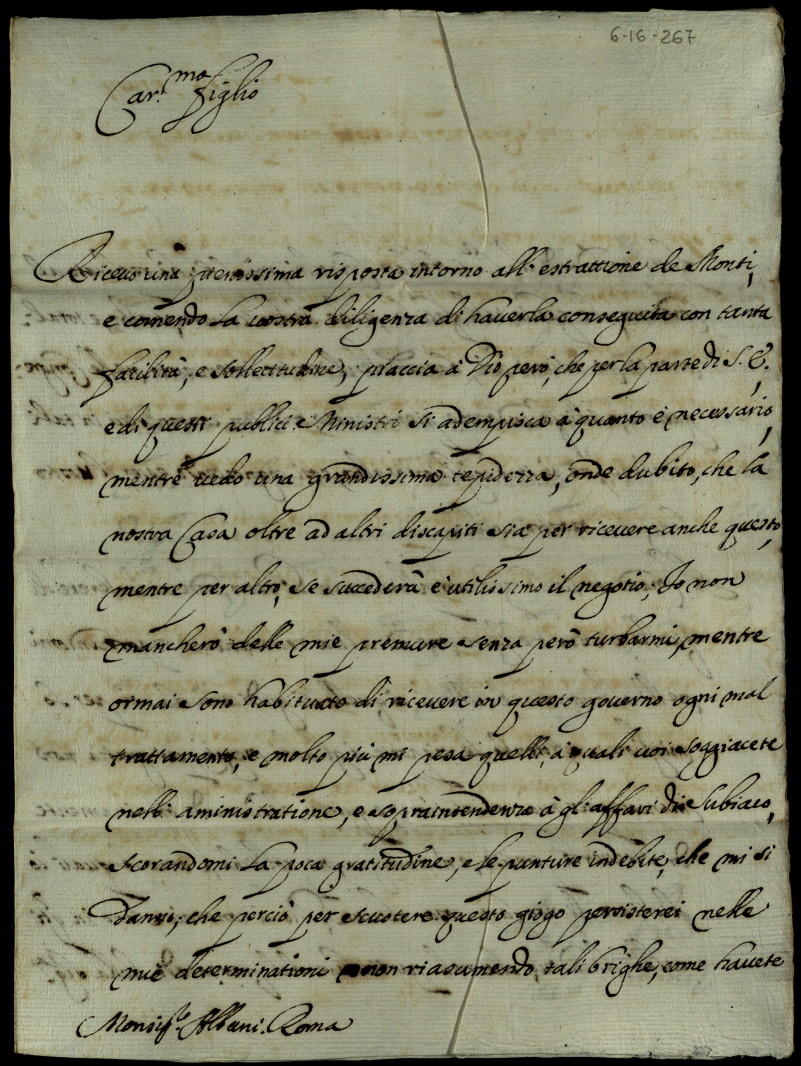 6-16-267
Car.mo figlio
Riceuo una pienissima risposta intorno all'estrattione de Monti,
e comendo la uostra diligenza di hauerla conseguita con tanta
facilità, e sollecitudine, piaccia à Dio però, che per la parte di S. E.,
e di questi publici Ministri si adempisca à quanto è necessario,
mentre uedo una grandissima tepidezza, onde dubito, che la
nostra Casa oltre ad altri discapiti sia per riceuere anche questo,
mentre per altro, se succederà è utilissimo il negotio, Io non
mancherò delle mie premure senza però turbarmi, mentre
ormai sono habituato di riceuere in questo gouerno ogni mal
trattamento, e molto più mi pesa quelli, à quali uoi soggiacete
nell'aministratione, e sopraintendenza à gl'affari di Subiaco,
scorandomi la poca gratitudine, e le punture indebite, che mi si
danno, che perciò per scuotere questo giogo persisterei nelle
mie determinationi non riasumendo tali brighe, come hauete
Monsig.re Albani. Roma